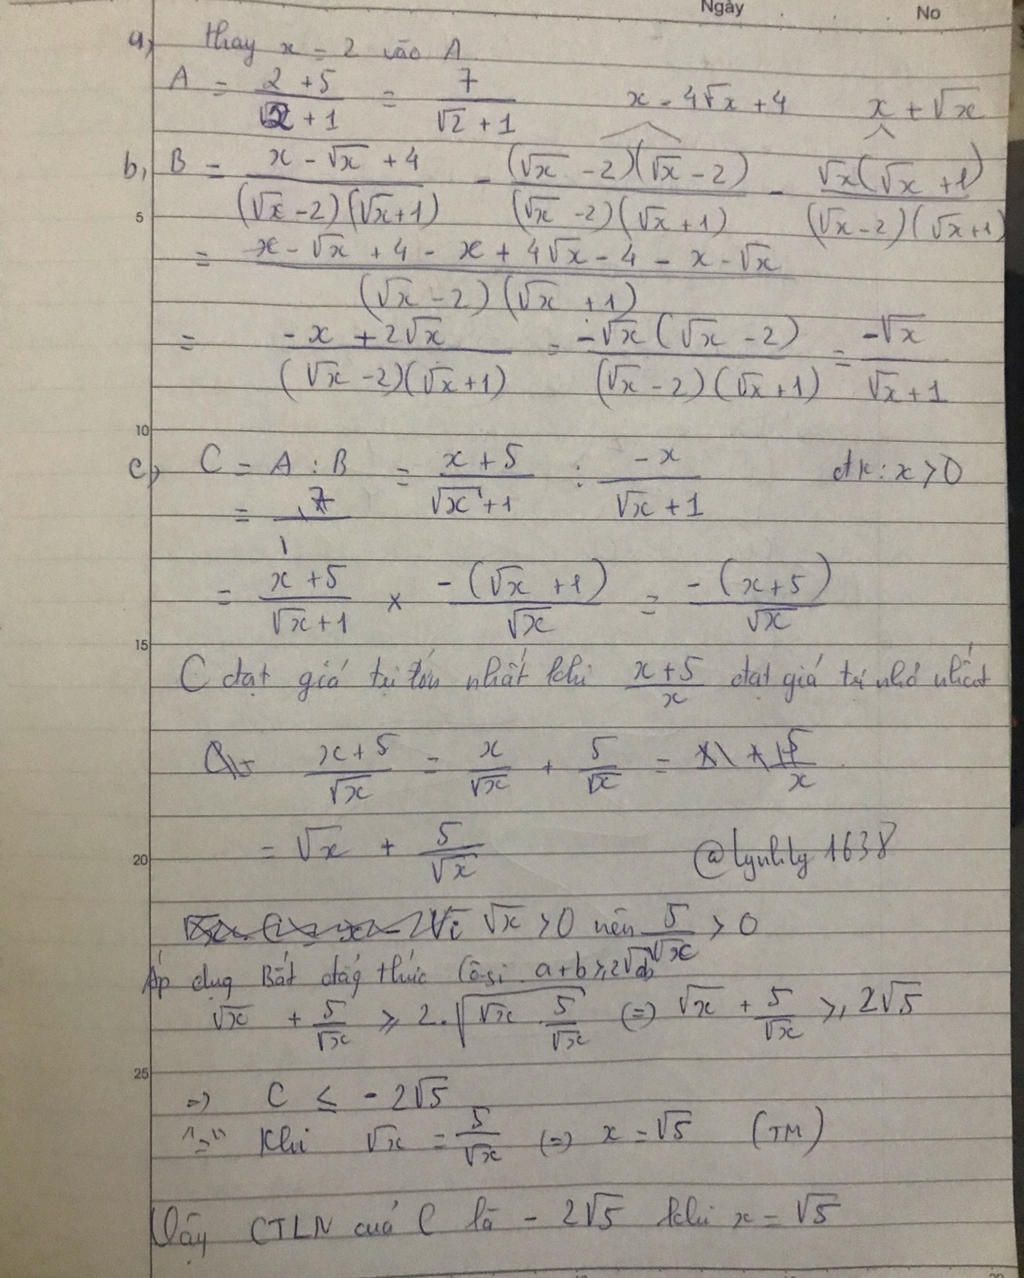 Ngày No
a, thay x = 2 vào A
A = (2 + 5)/(√2 + 1) = 7/(√2 + 1) x - 4√x + 4 x + √x
b, B = (x - √x + 4)/((√x - 2)(√x + 1)) - ((√x - 2)(√x - 2))/((√x - 2)(√x + 1)) - (√x(√x + 1))/((√x - 2)(√x + 1))
5
= (x - √x + 4 - x + 4√x - 4 - x - √x)/((√x - 2)(√x + 1))
= (-x + 2√x)/((√x - 2)(√x + 1)) = (-√x(√x - 2))/((√x - 2)(√x + 1)) = (-√x)/(√x + 1)
10
c, C = A : B = (x + 5)/(√x + 1) : (-x)/(√x + 1) đk: x > 0
= 7/1
= (x + 5)/(√x + 1) × (-(√x + 1))/√x = (-(x + 5))/√x
15
C đạt giá trị lớn nhất khi (x + 5)/x đạt giá trị nhỏ nhất
(x + 5)/√x = x/√x + 5/√x = 5/x
20
= √x + 5/√x @lynlily1638
√x > 0 nên 5/√x > 0
Áp dụg Bất đẳg thức Cô-si a+b ≥ 2√ab
√x + 5/√x ≥ 2.√(√x . 5/√x) (=) √x + 5/√x ≥ 2√5
25
=) C ≤ - 2√5
"=" khi √x = 5/√x (=) x = √5 (TM)
Vậy GTLN của C là - 2√5 khi x = √5